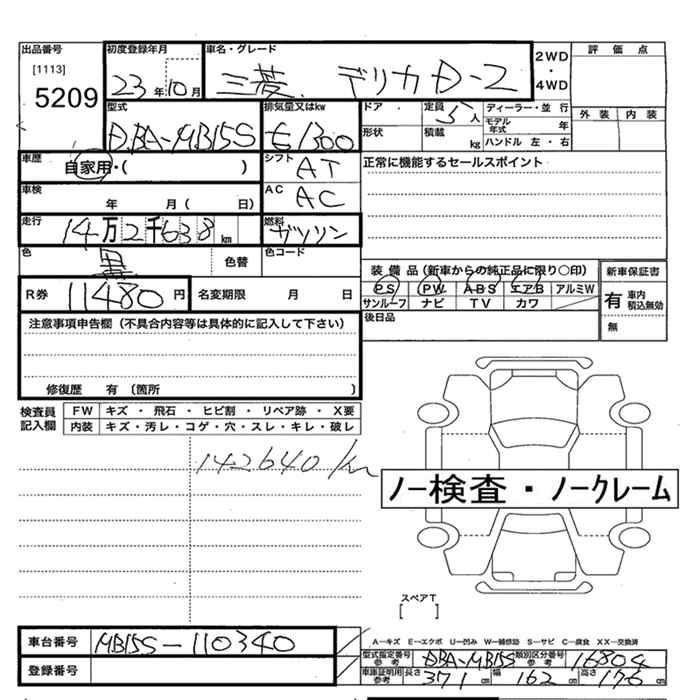 出品番号
[1113]
5209
初度登録年月
23年10月
車名・グレード
三菱. デリカD-2
2WD
・
4WD
評価点
外装 内装
型式
DBA-MB15S
排気量又はkw
1300
ドア
形状
定員 5人
積載 kg
ディーラー・並行
モデル年式 年
ハンドル 左・右
車歴
自家用・( )
シフト
AT
正常に機能するセールスポイント
車検
年 月( 日)
AC
AC
走行
14万2千638km
燃料
ガソリン
色
黒
色替
色コード
装備品(新車からの純正品に限り○印)
PS PW ABS エアB アルミW
サンルーフ ナビ TV カワ
新車保証書
有 車内積込無効
無
R券 11480円
名変期限 月 日
後日品
注意事項申告欄(不具合内容等は具体的に記入して下さい)
修復歴 有 (箇所 )
検査員記入欄
FW キズ・飛石・ヒビ割・リペア跡・X要
内装 キズ・汚レ・コゲ・穴・スレ・キレ・破レ
142640km
ノー検査・ノークレーム
スペアT
[ ]
車台番号 MB15S-110340
登録番号
A—キズ E—エクボ U—凹み W—補修跡 S—サビ C—腐食 XX—交換済
型式指定番号 参考 DBA-MB15S 類別区分番号 参考 16804
車庫証明用 参考 長さ 371cm 幅 162cm 高さ 176cm